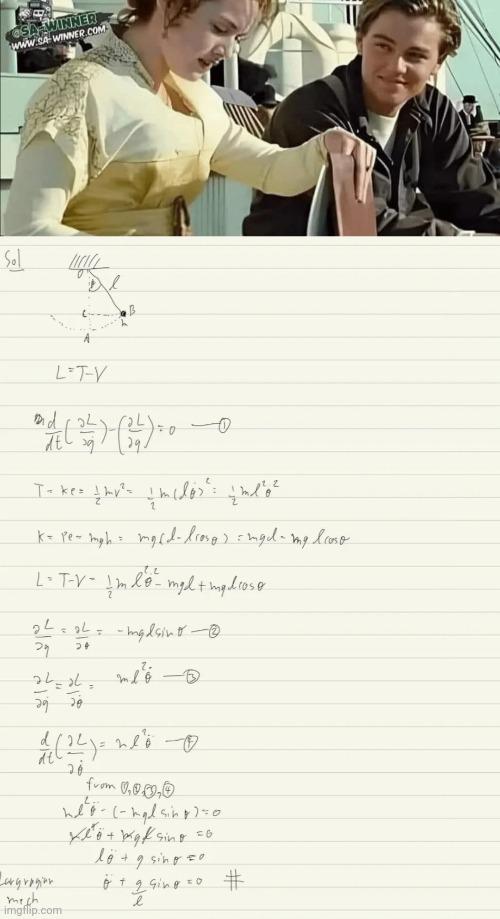 SA-WINNER
WWW.SA-WINNER.COM
Sol
O
θ
l
C
B
A
L = T-V
d/dt (∂L/∂q̇) - (∂L/∂q) = 0 — ①
T = ke = 1/2 mv² = 1/2 m(lθ̇)² = 1/2 ml²θ̇²
K = Pe = mgh = mg(l - lcosθ) = mgl - mglcosθ
L = T-V = 1/2 ml²θ̇² - mgl + mglcosθ
∂L/∂q = ∂L/∂θ = -mglsinθ — ②
∂L/∂q̇ = ∂L/∂θ̇ = ml²θ̇ — ③
d/dt (∂L/∂θ̇) = ml²θ̈ — ④
from ①,②,③,④
ml²θ̈ - (-mglsinθ) = 0
ml²θ̈ + mgl sinθ = 0
lθ̈ + g sinθ = 0
θ̈ + g/l sinθ = 0 #
Lagrangian
mech
imgflip.com